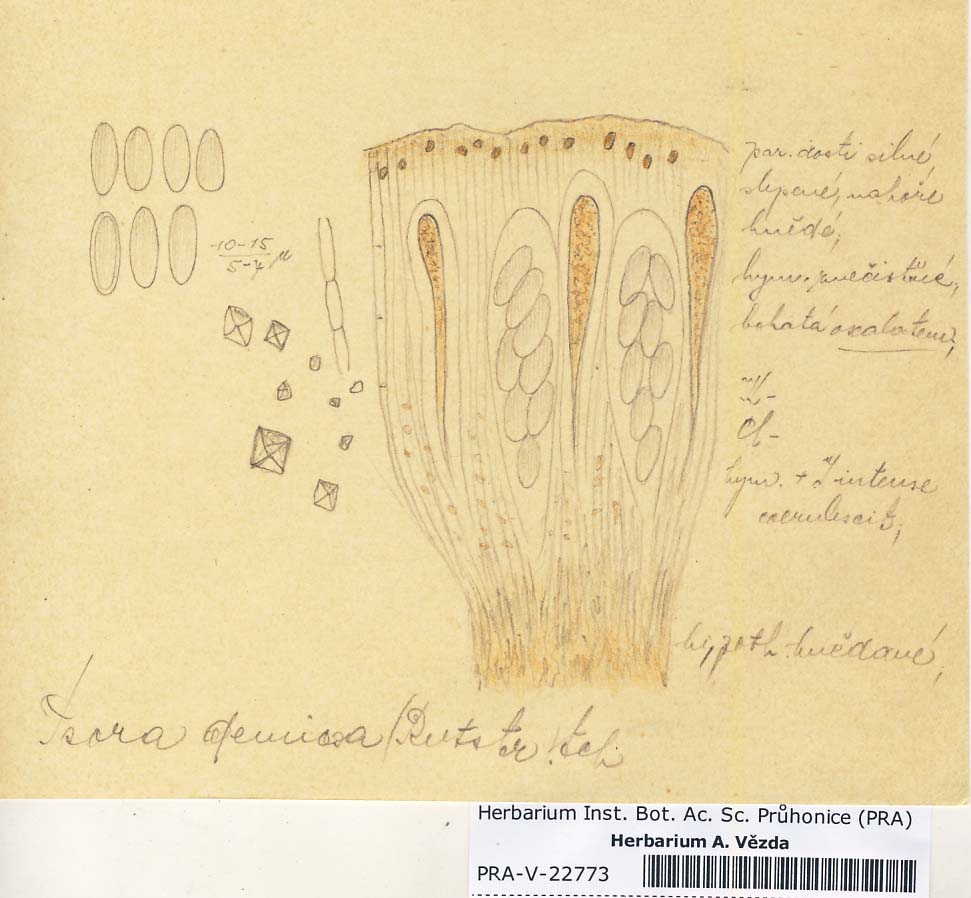 par. dosti silné
slepené, nahoře
hnědé,
hym. znečistěné,
bohatá oxalatem,
Cl-
hym. + J intense
coerulescit,
10-15
5-7 µ
hypoth. hnědavé,
Psora demissa (Rutstr.)
Herbarium Inst. Bot. Ac. Sc. Průhonice (PRA)
Herbarium A. Vězda
PRA-V-22773